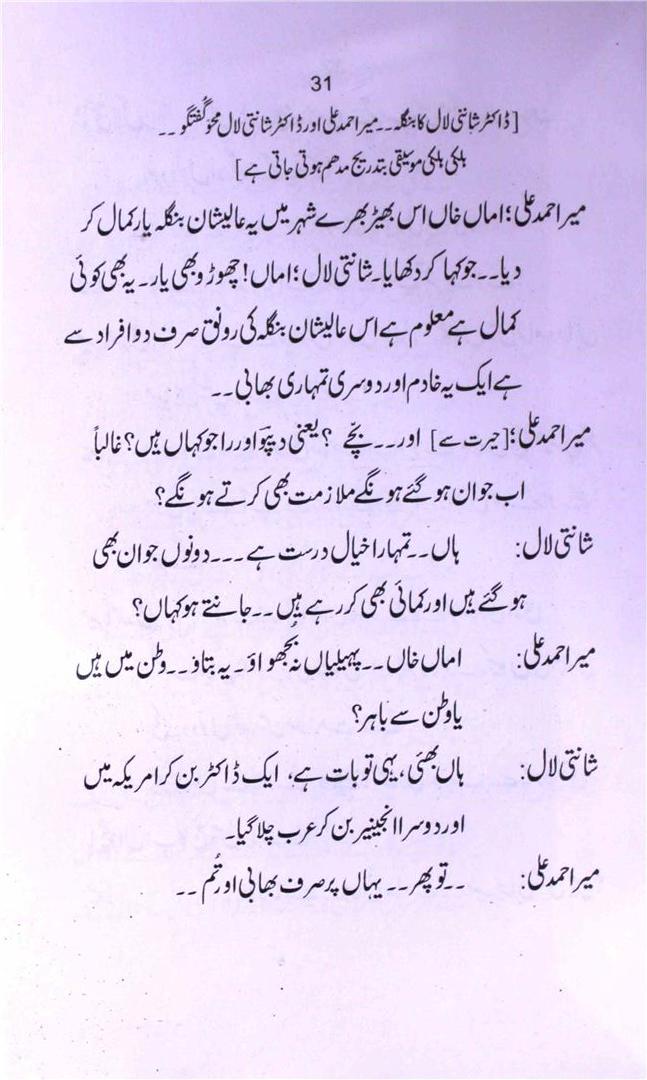 31
[ڈاکٹر شانتی لال کا بنگلہ۔۔ میر احمد علی اور ڈاکٹر شانتی لال محوِ گفتگو۔۔
ہلکی ہلکی موسیقی بتدریج مدھم ہوتی جاتی ہے]
میر احمد علی؛ اماں خاں اس بھیڑ بھرے شہر میں یہ عالیشان بنگلہ یار کمال کر
دیا۔۔ جو کہا کر دکھایا۔ شانتی لال؛ اماں! چھوڑو بھی یار۔ یہ بھی کوئی
کمال ہے معلوم ہے اس عالیشان بنگلہ کی رونق صرف دو افراد سے
ہے ایک یہ خادم اور دوسری تمہاری بھابی۔۔
میر احمد علی؛ [حیرت سے] اور۔۔ بچّے ؟ یعنی دیپو اور راجو کہاں ہیں؟ غالباً
اب جوان ہو گئے ہونگے ملازمت بھی کرتے ہونگے؟
شانتی لال: ہاں۔۔ تمہارا خیال درست ہے۔۔۔ دونوں جوان بھی
ہو گئے ہیں اور کمائی بھی کر رہے ہیں۔۔ جانتے ہو کہاں؟
میر احمد علی: اماں خاں۔۔ پہیلیاں نہ بُجھواؤ۔ یہ بتاؤ۔۔ وطن میں ہیں
یا وطن سے باہر؟
شانتی لال: ہاں بھئی، یہی تو بات ہے، ایک ڈاکٹر بن کر امریکہ میں
اور دوسرا انجینیر بن کر عرب چلا گیا۔
میر احمد علی: ۔۔ تو پھر۔۔ یہاں پر صرف بھابی اور تُم۔۔